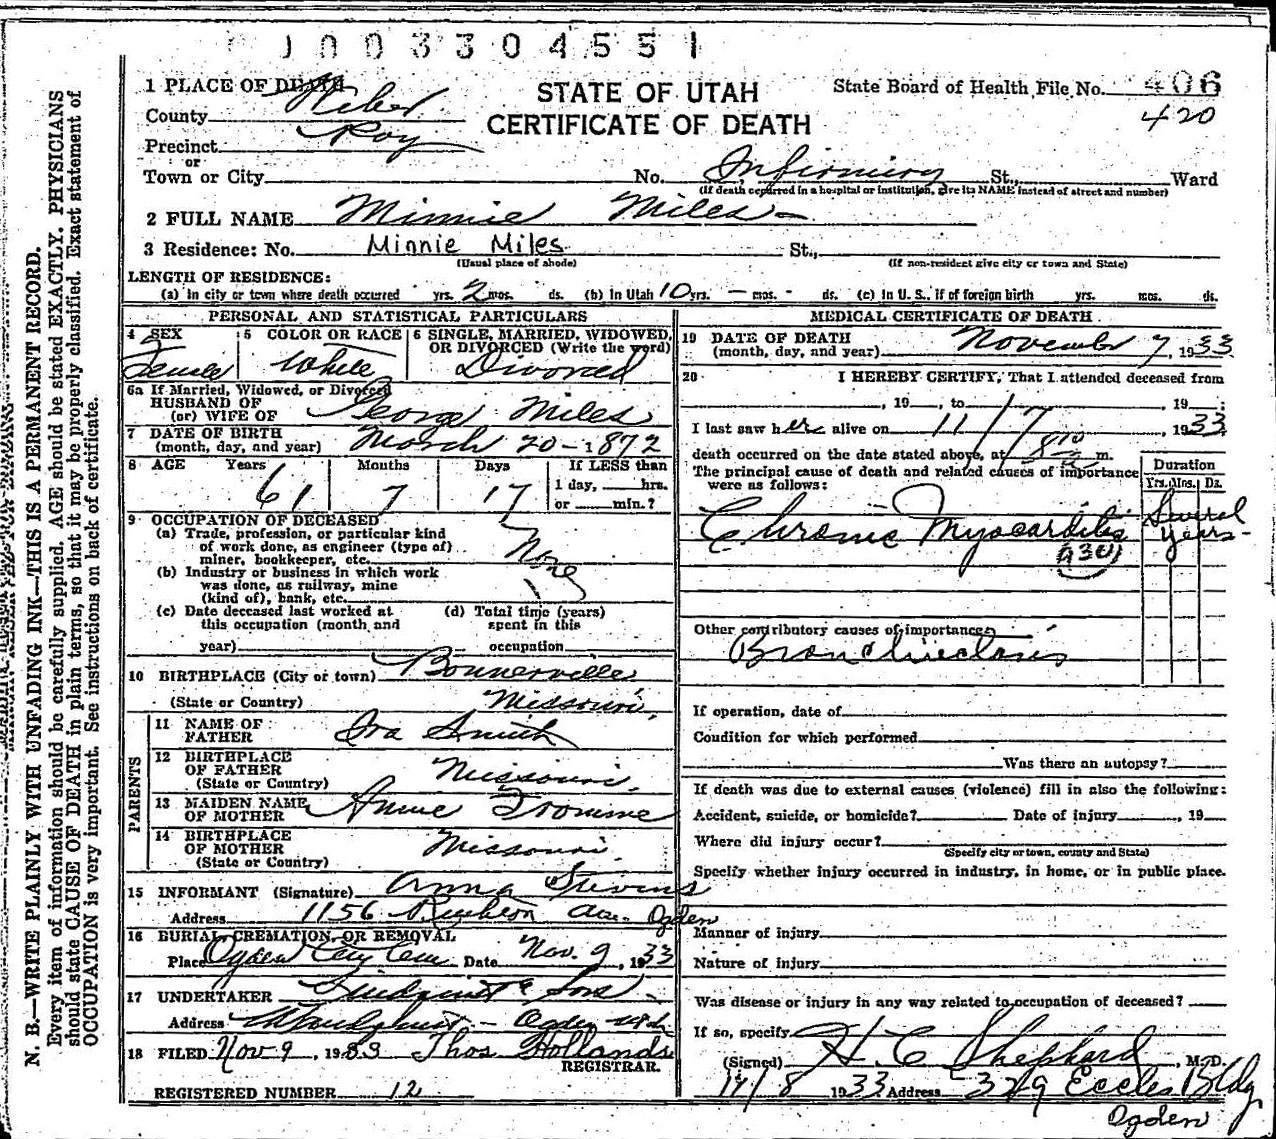 J003304551
1 PLACE OF DEATH
STATE OF UTAH
State Board of Health File No. 406
County Weber
CERTIFICATE OF DEATH
420
Precinct Roy
or
Town or City No. Infirmiry St., Ward
(If death occurred in a hospital or institution, give its NAME instead of street and number)
2 FULL NAME Minnie Miles
3 Residence: No. Minnie Miles St.,
(Usual place of abode) (If non-resident give city or town and State)
LENGTH OF RESIDENCE:
(a) In city or town where death occurred yrs. 2 mos. ds. (b) In Utah 10 yrs. - mos. - ds. (c) In U. S., if of foreign birth yrs. mos. ds.
PERSONAL AND STATISTICAL PARTICULARS
4 SEX 5 COLOR OR RACE 6 SINGLE, MARRIED, WIDOWED,
OR DIVORCED (Write the word)
Female White Divorced
6a If Married, Widowed, or Divorced
HUSBAND OF
(or) WIFE OF George Miles
7 DATE OF BIRTH
(month, day, and year) March 20-1872
8 AGE Years Months Days If LESS than
61 7 17 1 day, hrs.
or min.?
9 OCCUPATION OF DECEASED
(a) Trade, profession, or particular kind
of work done, as engineer (type of)
miner, bookkeeper, etc. None
(b) Industry or business in which work
was done, as railway, mine
(kind of), bank, etc.
(c) Date deceased last worked at (d) Total time (years)
this occupation (month and spent in this
year) occupation
10 BIRTHPLACE (City or town) Bonnerville
(State or Country) Missouri.
PARENTS
11 NAME OF
FATHER Ira Smith
12 BIRTHPLACE
OF FATHER
(State or Country) Missouri.
13 MAIDEN NAME
OF MOTHER Annie Fromme
14 BIRTHPLACE
OF MOTHER
(State or Country) Missouri.
15 INFORMANT (Signature) Anna Stivens
Address 1156 Ave. Ogden
16 BURIAL, CREMATION, OR REMOVAL
Place Ogden City Cem Date Nov. 9, 1933
17 UNDERTAKER & Sons
Address - Ogden Utah
18 FILED Nov 9, 1933 Thos Hollands
REGISTRAR.
REGISTERED NUMBER 12
MEDICAL CERTIFICATE OF DEATH
19 DATE OF DEATH
(month, day, and year) November 7, 1933
20 I HEREBY CERTIFY, That I attended deceased from
, 19 , to , 19 .
I last saw her alive on 11/7, 1933
death occurred on the date stated above, at 8 a m.
The principal cause of death and related causes of importance
were as follows:
Duration
Yrs. Mos. Ds.
Chronic Myocarditis Several
years-
930
Other contributory causes of importance:
Bronchiectasis
If operation, date of
Condition for which performed
Was there an autopsy?
If death was due to external causes (violence) fill in also the following:
Accident, suicide, or homicide? Date of injury , 19
Where did injury occur?
(Specify city or town, county and State)
Specify whether injury occurred in industry, in home, or in public place.
Manner of injury
Nature of injury
Was disease or injury in any way related to occupation of deceased?
If so, specify
(Signed) H. C. Shephard, M. D.
11/8 1933 Address 329 Eccles Bldg
Ogden
N. B.—WRITE PLAINLY WITH UNFADING INK—THIS IS A PERMANENT RECORD.
Every item of information should be carefully supplied. AGE should be stated EXACTLY. PHYSICIANS
should state CAUSE OF DEATH in plain terms, so that it may be properly classified. Exact statement of
OCCUPATION is very important. See instructions on back of certificate.